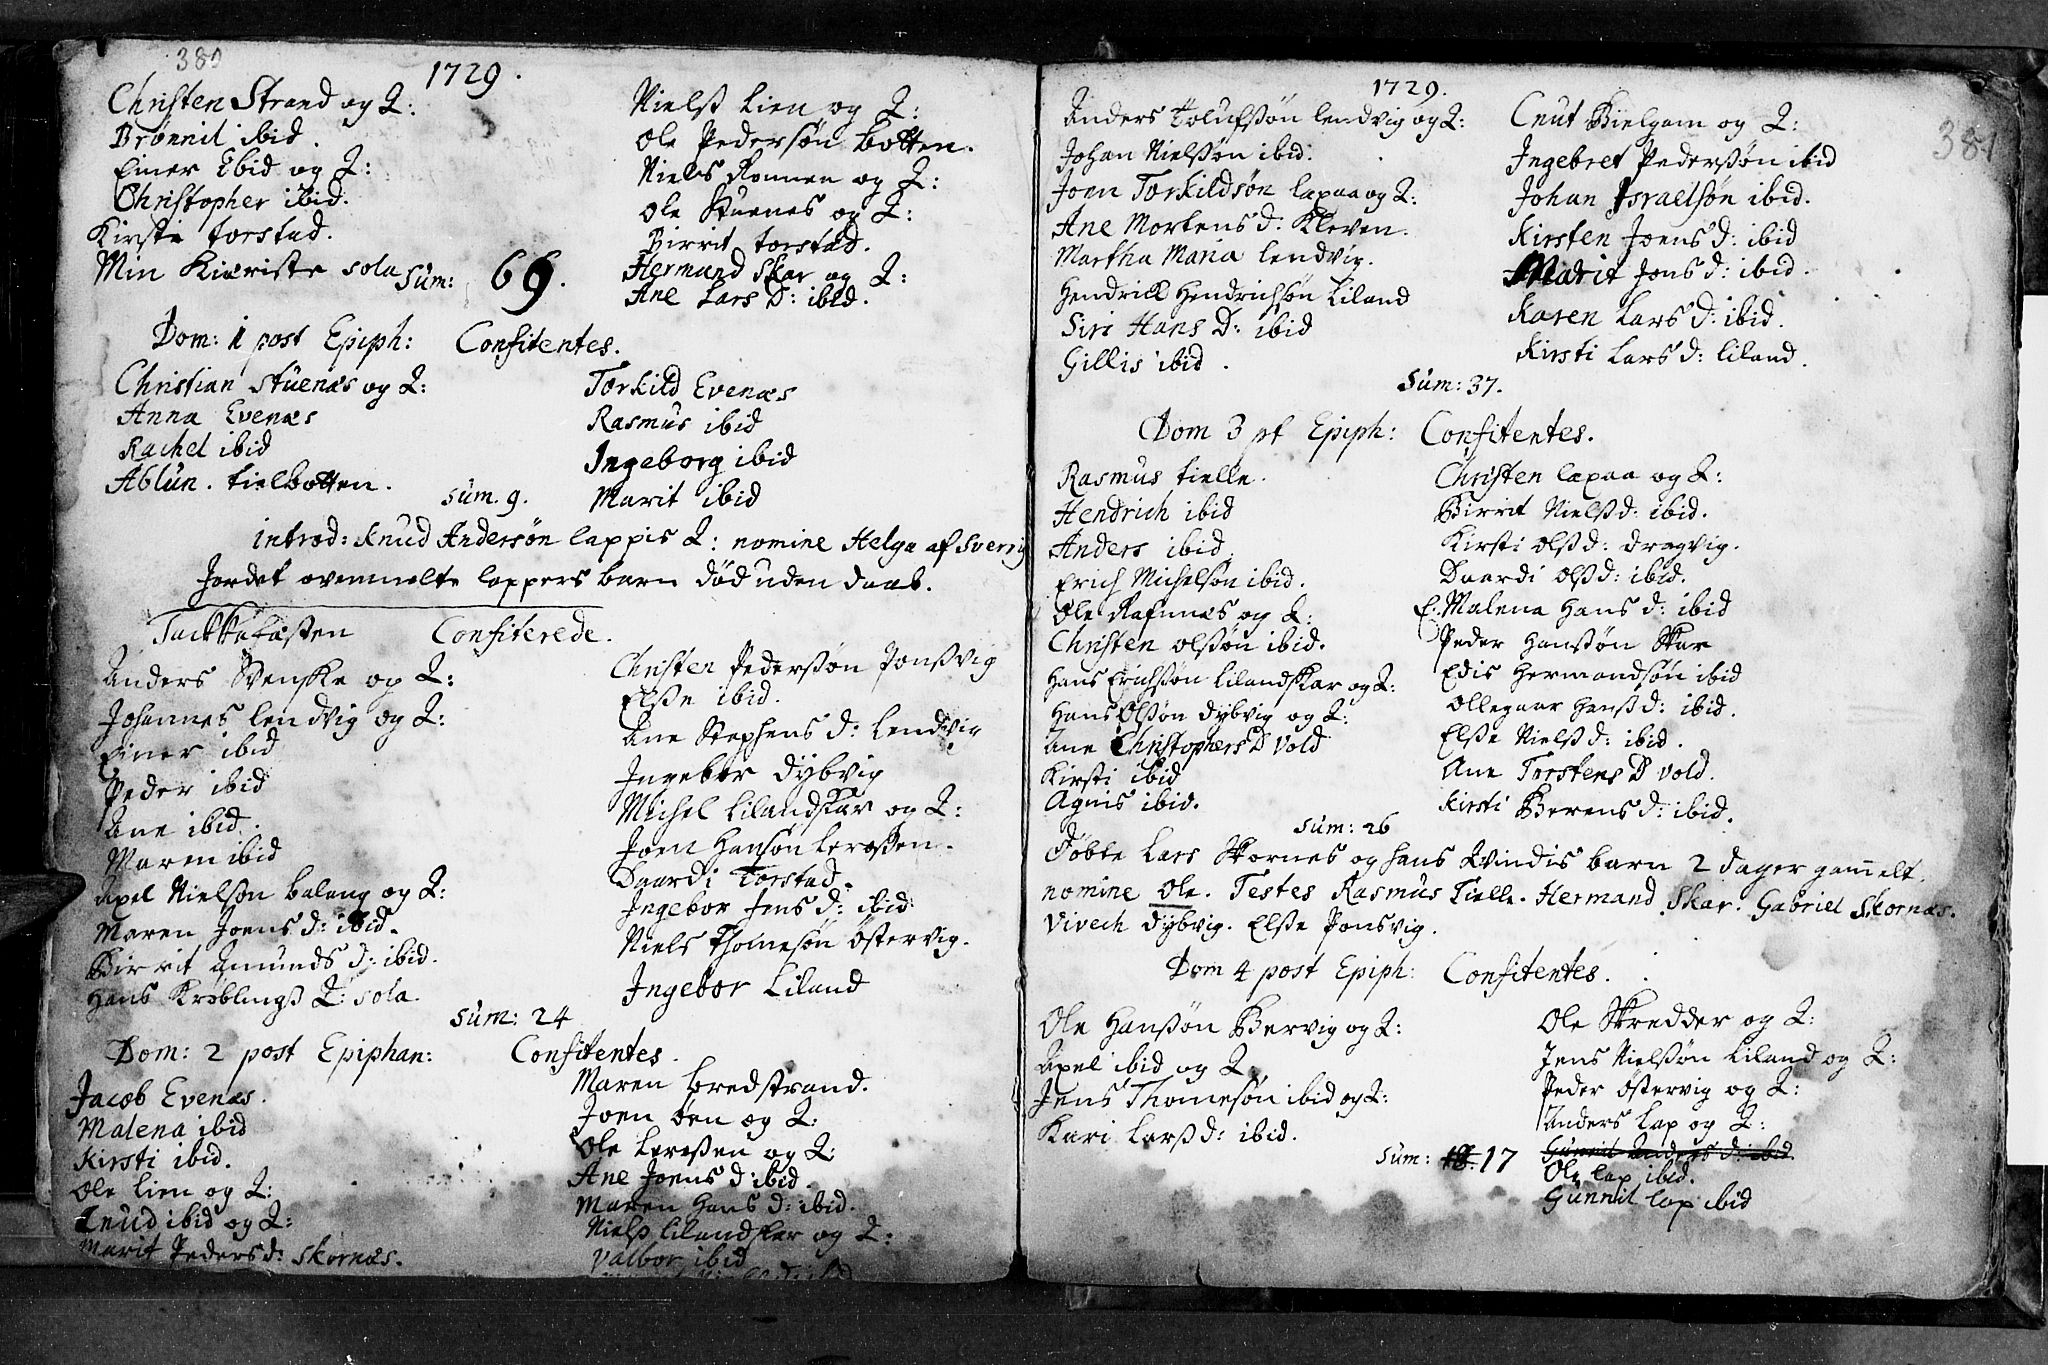 380
1729.
Christen Strand og Q:
Drønnil ibid.
Einer Ibid og Q:
Christopher ibid.
Kirste torstad.
Min Kiæriste sola
Sum: 69.
Niels Lien og Q:
Ole Pedersøn botten.
Niels Ronnen og Q:
Ole Stuenes og Q:
Birrit torstad.
Hermand Skar og Q:
Ane Lars D: ibid.
Dom: 1 post Epiph: Confitentes.
Christian Stuenæs og Q:
Anna Evenæs
Rachel ibid
Ablun. tielbotten.
Torkild Evenæs
Rasmus ibid
Ingeborg ibid
Marit ibid
sum. 9.
introd: Knud Andersøn lappis Q: nomine Helga af Sverrig
Jordet ovenmelte lappers barn død uden daab.
Tackkefæsten Confiterede.
Anders Svenske og Q:
Johannes lendvig og Q:
Einer ibid
Peder ibid
Ane ibid.
Maren ibid
Axel Nielsøn balang og Q:
Maren Joens d: ibid.
Birrit Amunds d: ibid.
Hans Kræblings Q: sola.
Christen Pederssøn Ponssvig
Elsse ibid.
Ane Stephens d: Lendvig
Ingebor dybvig
Michel Lilandskar og Q:
Joen Hansøn Lerossen.
Daardi Torstad.
Ingebor Jens d: ibid
Niels Thomesøn Østervig.
Ingebor Liland
sum: 24
Dom: 2 post Epiphan: Confitentes.
Jacob Evenæs.
Malena ibid
Kirsti ibid.
Ole Lien og Q:
Knud ibid og Q:
Marit Peders d: Skornæs.
Maren bredstrand.
Joen Øen og Q:
Ole Lerossen og Q:
Ane Joens d: ibid.
Maren Hans d: ibid.
Niels Lilandskar og Q:
Valbor ibid
381
1729.
Anders Tolufssøn lendvig og Q:
Johan Nielssøn ibid.
Joen Torkildsøn lapaa og Q:
Ane Mortens d: Kleven.
Martha Maria lendvig.
Hendrick Hendrichsøn Liland
Siri Hans D: ibid
Gillis ibid.
Cnut Bielgam og Q:
Ingebret Pederssøn ibid
Johan Israelsøn ibid.
Kirsten Joens d: ibid
Marit Jons d: ibid.
Karen Lars d: ibid.
Kirsti Lars d: liland.
Sum: 37.
Dom 3 pt Epiph: Confitentes.
Rasmus tielle.
Hendrich ibid
Anders ibid.
Erich Michelsøn ibid.
Ole Rafnnæs og Q:
Christen Olssøn ibid.
Hans Erichssøn Lilandskar og Q:
Hans Olssøn dybvig og Q:
Ane Christophers D Vold
Kirsti ibid
Agnis ibid.
Christen lapaa og Q:
Birrit Nielss d: ibid.
Kirsti Olss d: dragvig.
Daardi Olss d: ibid.
E. Malena Hans d: ibid
Peder Hanssøn Skar
Edis Hermandsøn ibid
Ollegaar Hanss d: ibid.
Elsse Nielss d: ibid.
Ane Torstens D Vold.
Kirsti Berens d: ibid.
sum: 26
Døbte Lars Skornes og hans Qvindis barn 2 dager gammelt.
nomine Ole. Testes Rasmus Tielle. Hermand Skar. Gabriel Skornæs.
Vivech dybvig. Elsse Ponsvig.
Dom 4 post Epiph: Confitentes.
Ole Hanssøn Bervig og Q:
Axel ibid og Q.
Jens Thomesøn ibid og Q:
Kari Larss d: ibid.
Ole Skredder og Q:
Jens Nielssøn Liland og Q:
Peder Østervig og Q:
Anders Lap og Q:
Gunnil Anders d: ibid
Ole lap ibid.
Gunnil lap ibid
sum: 18. 17